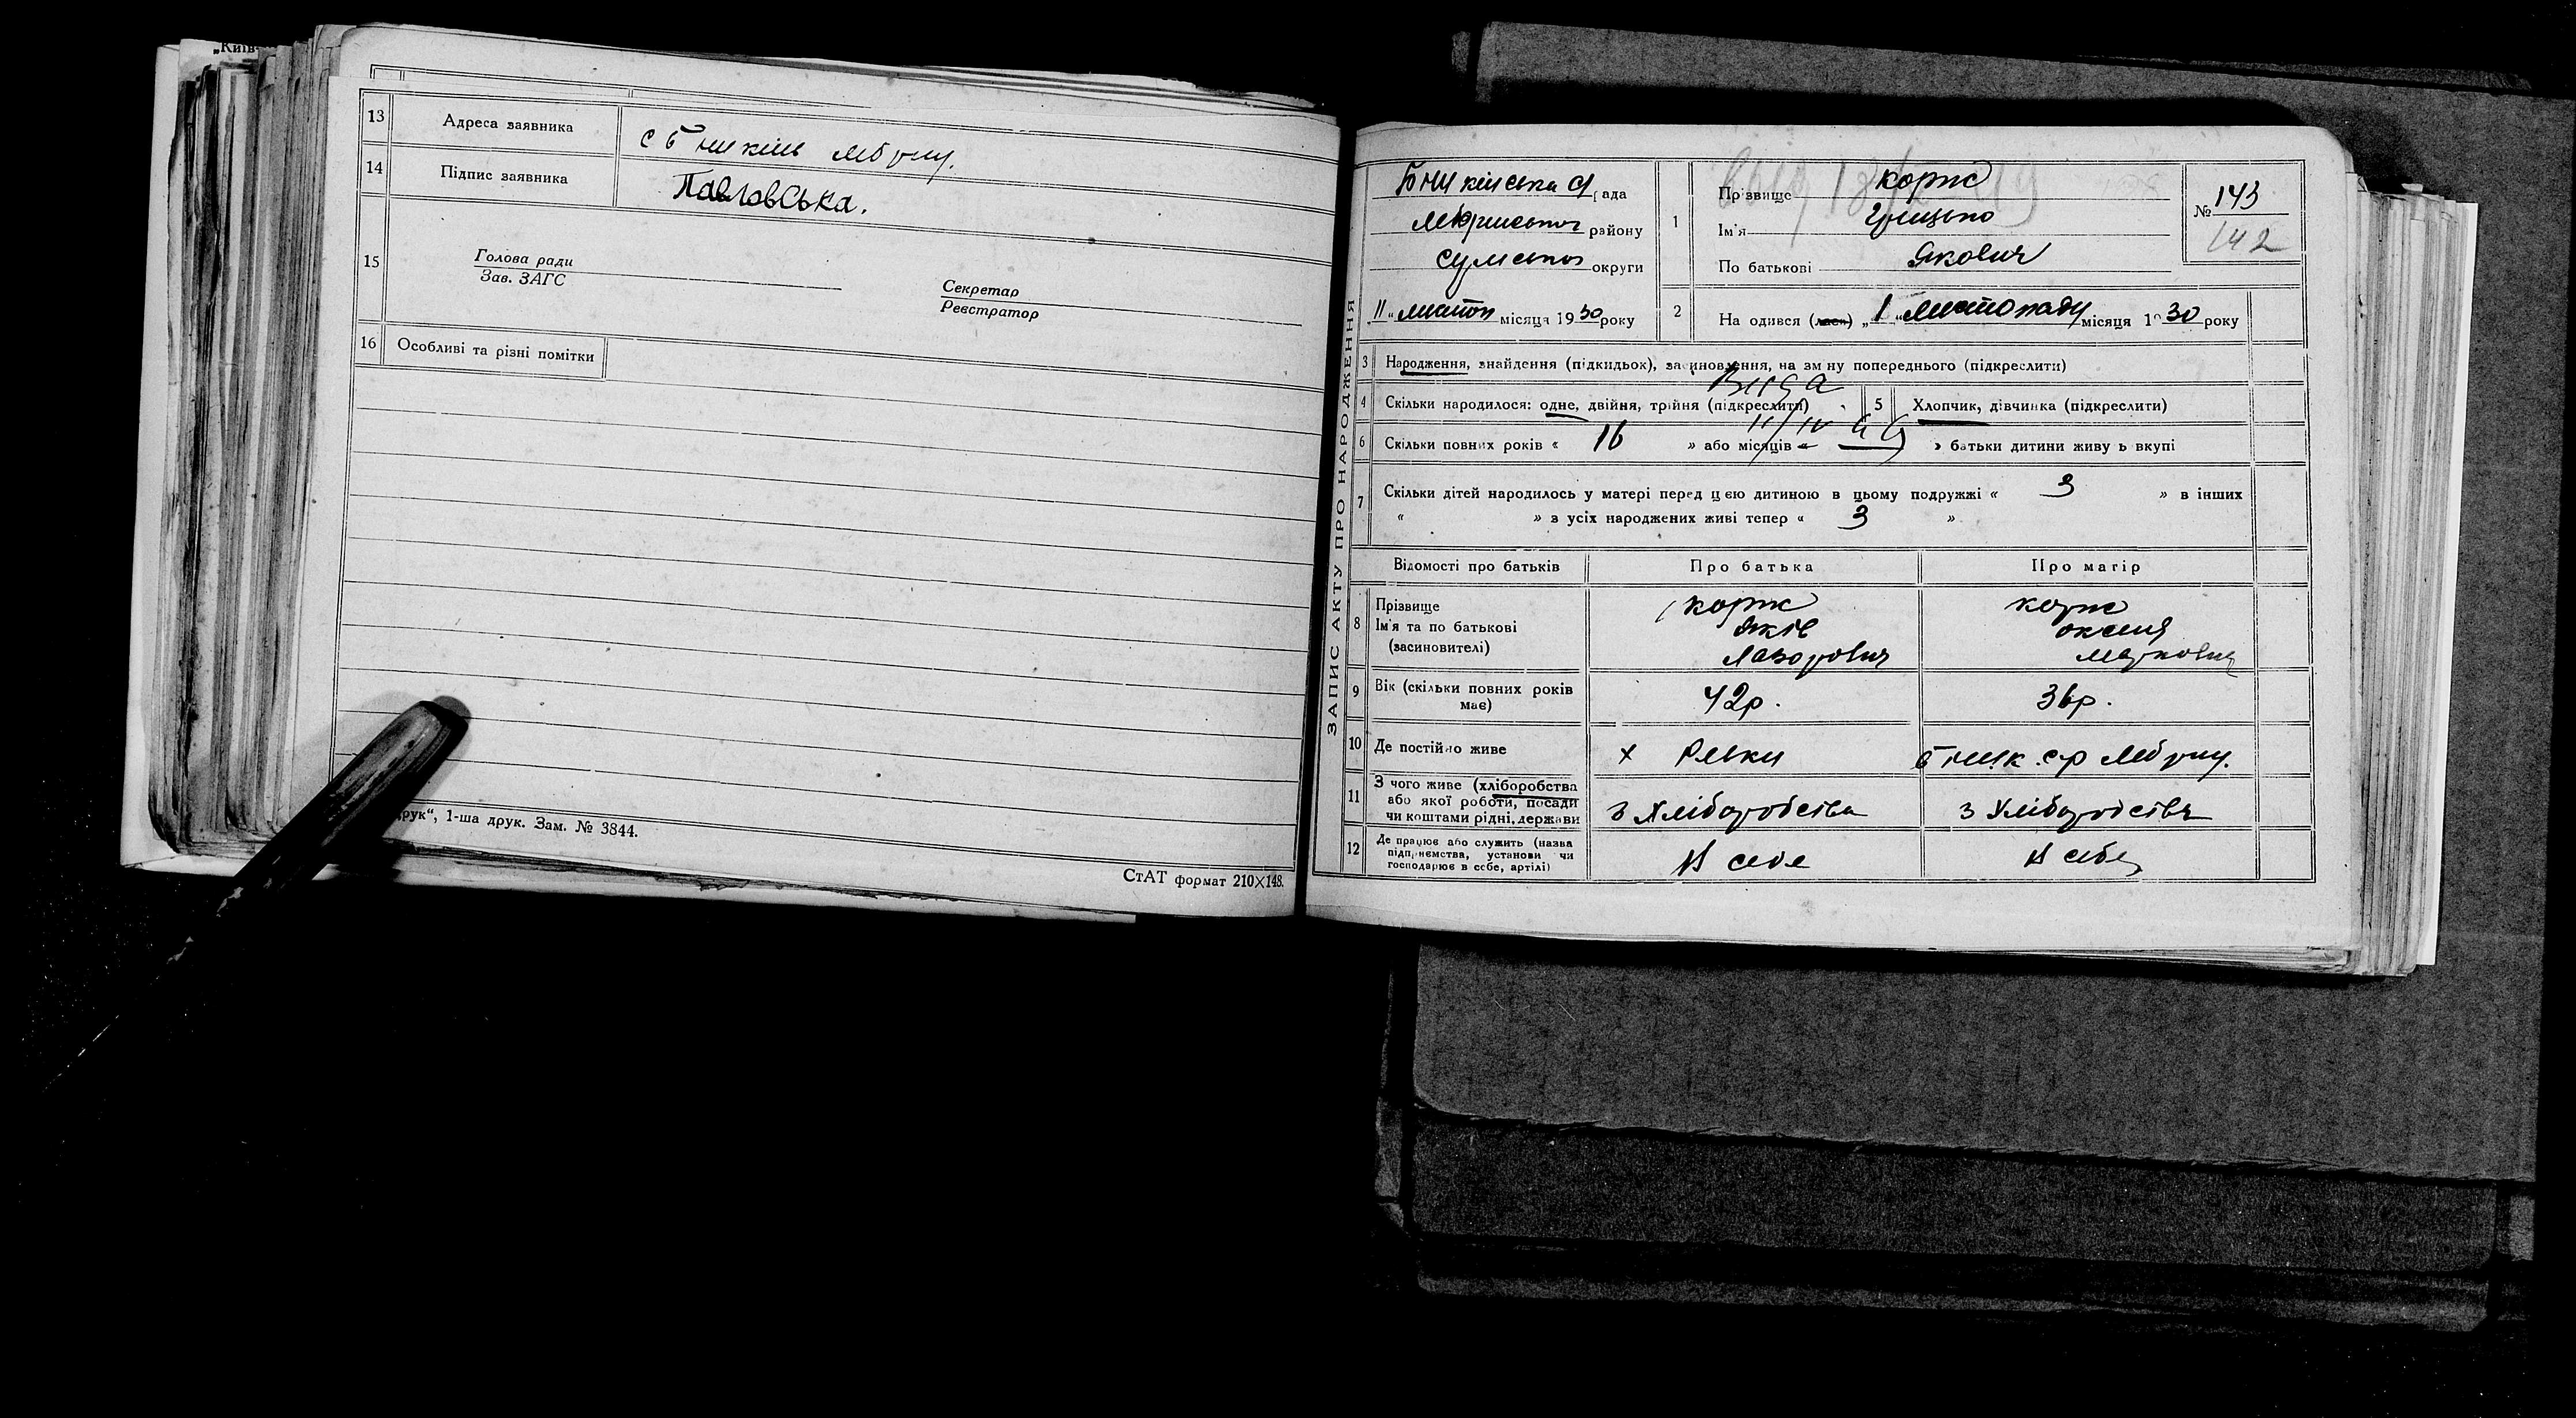 „Київ-
13 Адреса заявника
14 Підпис заявника Павловська.
15 Голова ради
Зав. ЗАГС
Секретар
Реєстратор
16 Особливі та різні помітки
друк“, 1-ша друк. Зам. № 3844.
СтАТ формат 210×148.
ЗАПИС АКТУ ПРО НАРОДЖЕННЯ
рада
району
Сумської округи
„11“ листоп місяця 1930 року
1 Прізвище Корж
Ім'я Грицько
По батькові Якович
№ 143
142
2 Народився (лась) „1“ листопаду місяця 1930 року
3 Народження, знайдення (підкидьок), засиновлення, на зміну попереднього (підкреслити)
4 Скільки народилося: одне, двійня, трійня (підкреслити)
5 Хлопчик, дівчинка (підкреслити)
6 Скільки повних років « 16 » або місяців « — » батьки дитини живуть вкупі
7 Скільки дітей народилось у матері перед цією дитиною в цьому подружжі « 3 » в інших
« » з усіх народжених живі тепер « 3 »
Відомості про батьків Про батька Про матір
8 Прізвище Корж Корж
Ім'я та по батькові Яків Оксеня
(засиновителі) Лазорович Маркович
9 Вік (скільки повних років має) 42р. 36р.
10 Де постійно живе х
11 З чого живе (хліборобства
або якої роботи, посади
чи коштами рідні, держави
з Хліборобства з Хліборобства
12 Де працює або служить (назва
підприємства, установи чи
господарює в себе, артілі)
В себе В себе